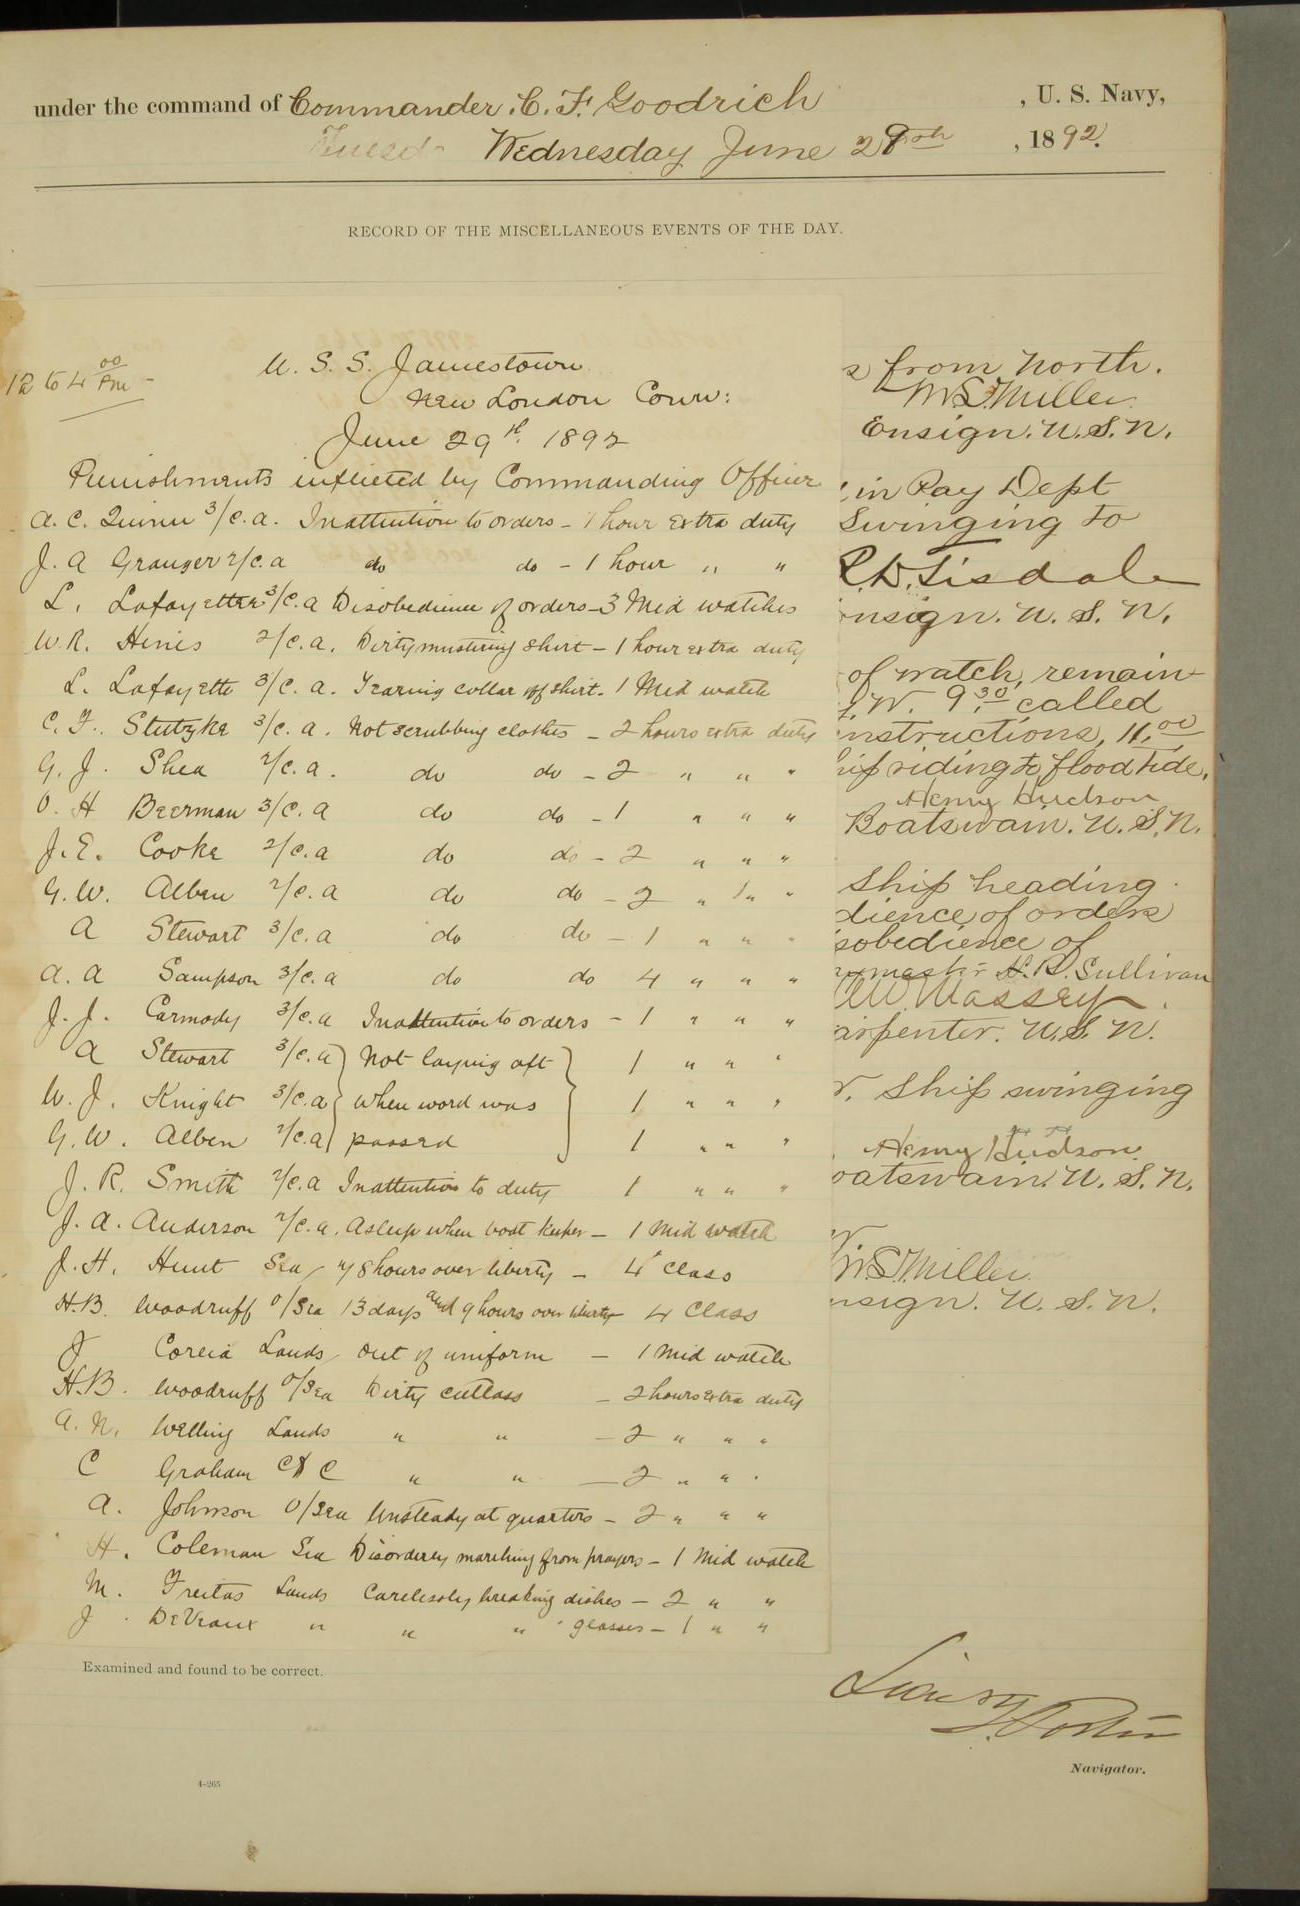 under the command of Commander. C. F. Goodrich , U. S. Navy,
Wednesday June 29th , 1892.
RECORD OF THE MISCELLANEOUS EVENTS OF THE DAY.
12 to 4 00 Pm -
U. S. S. Jamestown
New London Conn:
June 29th 1892
Punishments inflicted by Commanding Officer
A. C. Quinn 3/c. a. Inattention to orders - 1 hour extra duty
J. A Granger 2/c. a do do - 1 hour " "
L. Lafayette 3/c. a Disobedience of orders - 3 Mid watches
W. R. Hines 2/c. a. Dirty mustering shirt - 1 hour extra duty
L. Lafayette 3/c. a. Tearing collar off shirt. 1 Mid watch
C. F. Stutzke 3/c. a. Not scrubbing clothes - 2 hours extra duty
G. J. Shea 2/c. a. do do - 2 " " "
O. H Beerman 3/c. a do do - 1 " " "
J. E. Cooke 2/c. a do do - 2 " " "
G. W. Alben 2/c. a do do - 2 " " "
A Stewart 3/c. a do do - 1 " " "
A. A Sampson 3/c. a do do 4 " " "
J. J. Carmody 3/c. a Inattention to orders - 1 " " "
A Stewart 3/c. a } Not laying aft } 1 " " "
W. J. Knight 3/c. a { when word was 1 " " "
G. W. Alben 2/c. a } passed 1 " " "
J. R. Smith 2/c. a Inattention to duty 1 " " "
J. A. Anderson 2/c. a. Asleep when boat keeper - 1 Mid watch
J. H. Hunt Sea 78 hours over liberty - 4 Class
H. B. Woodruff O/Sea 13 days and 9 hours over liberty 4 Class
J Correia Lands out of uniform - 1 Mid watch
H. B. Woodruff O/Sea Dirty cutlass - 2 hours extra duty
A. N. Welling Lands " " - 2 " " "
C Graham " " - 2 " " "
A. Johnson O/Sea Unsteady at quarters - 2 " " "
H. Coleman Sea Disorderly marching from prayers - 1 Mid watch
M. Freitas Lands Carelessly breaking dishes - 2 " "
J DeVeaux " " " glasses - 1 " "
s from North.
W. S. Miller
Ensign. U. S. N.
in Pay Dept
swinging to
R. D. Tisdale
nsign. U. S. N.
of watch, remain
W. 9.30 called
nstructions, 11.00
hip riding to flood tide.
Henry Hudson
Boatswain. U. S. N.
Ship heading
dience of orders
sobedience of
master H. D. Sullivan
W. Massey
arpenter. U. S. N.
Ship swinging
Henry Hudson.
oatswain. U. S. N.
W. S. Miller
nsign. U. S. N.
Examined and found to be correct.
Navigator.
4-265